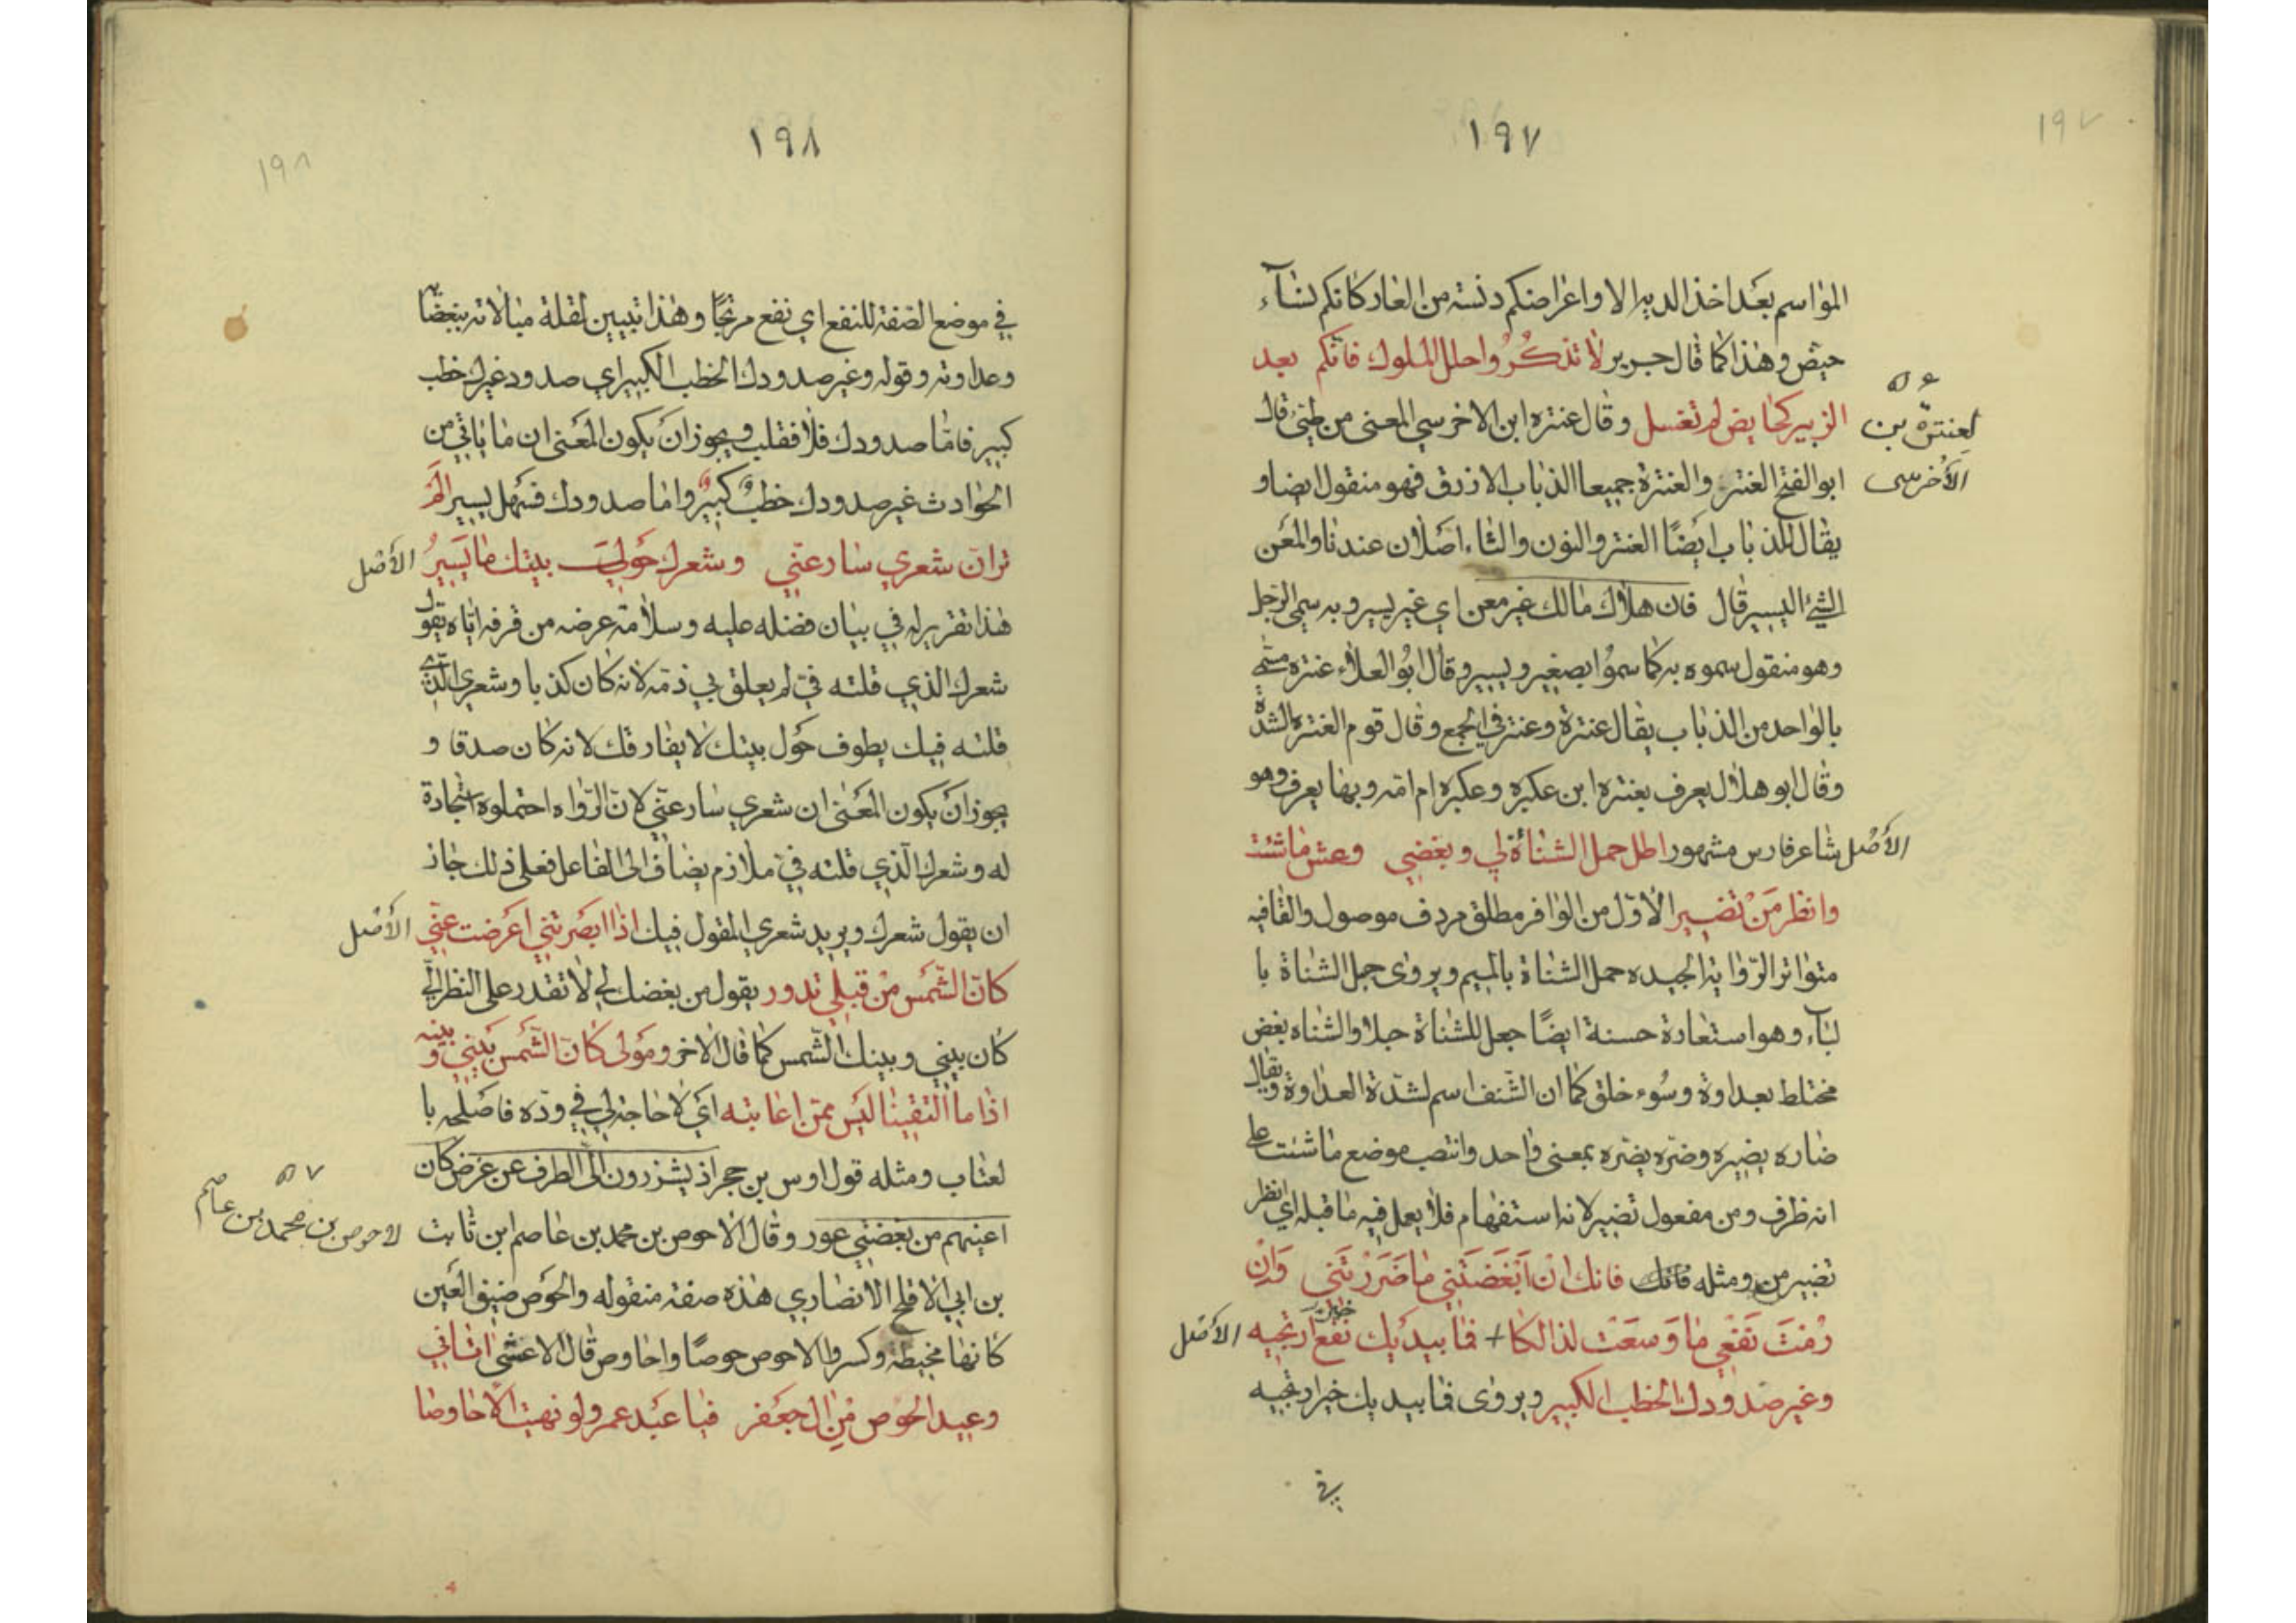 ١٩٧
١٩٧
المواسم بعد اخذ الدية الا واعراضكم دنسة من العار كانكم نسآء
حيض وهذا كما قال جرير لا تذكروا حلل الملوك فانكم بعد
الزبير كحايض لم تغسل وقال عنتره ابن الاخرسي المعنى من طيئ قال
٥٦
لعنترة بن
الأخرسى
ابو الفتح العنتر والعنترة جميعا الذباب الازرق فهو منقول ايضا و
يقال للذباب ايضًا العنتر والنون والتاء اصلان عندنا والمعن
الشئ اليسير قال فان هلاك مالك غير معن اي غير يسير وبه سمى الرجل
وهو منقول سموه به كما سموا بصغير ويسير وقال ابو العلاء عنتره مسمى
بالواحد من الذباب يقال عنترة وعنتر في الجمع وقال قوم العنتره الشدة
وقال ابو هلال يعرف بعنتره ابن عكبره وعكبره ام امه وبها يعرف وهو
شاعر فارس مشهور اطل حمل الشناءة لي وبغضي وعش ما شئت
الأصل
وانظر من تضير الاول من الوافر مطلق مردف موصول والقافيه
متواتر الروايه الجيده حمل الشناة بالميم ويروى حبل الشناة با
لبآء وهو استعارة حسنة ايضًا جعل للشناة حبلا والشناه بغض
مختلط بعداوة وسوء خلق كما ان الشنف اسم لشدة العداوة ويقال
ضاره يضيره وضره يضره بمعنى واحد وانتصب موضع ما شئت على
انه ظرف ومن مفعول تضير لانه استفهام فلا يعمل فيه ما قبله اي انظر
تضير من ومثله فانك فانك ان ابغضتني ما ضررتني وان
رمت نفعي ما وسعت لذالكا + فما بيديك نفع ارتجيه
خير
الأصل
وغير صدودك الخطب الكبير ويروى فما بيديك خير ارتجيه
في
١٩٨
١٩٨
في موضع الصفة للنفع اي نفع مرتجًا وهذا تبيين لقلة مبالاته ببغضا
وعداوته وقوله وغير صدودك الخطب الكبير اي صدود غيرك خطب
كبير فاما صدودك فلا فقليب ويجوز ان يكون المعنى ان ما ياتي من
الحوادث غير صدودك خطب كبير واما صدودك فسهل يسير الم
تر ان شعري سار عنّي وشعرك حولي بيتك ما يسير
الأصل
هذا تقرير له في بيان فضله عليه وسلامة عرضه من قرفه اياه يقول
شعرك الذي قلته في لم يعلق بي ذمه لانه كان كذبا وشعري الذي
قلته فيك يطوف حول بيتك لا يفارقك لانه كان صدقا و
يجوز ان يكون المعنى ان شعري سار عني لان الرواه احتملوه استجادة
له وشعرك الذي قلته في ملازم يضاف الى الفاعل فعلى ذلك جاز
ان يقول شعرك ويريد شعري المقول فيك اذا ابصرتني اعرضت عني
الأصل
كان الشمس من قبلي تدور يقول من بغضك لي لا تقدر على النظر الي
كان بيني وبينك الشمس كما قال الاخر ومولى كان الشمس بيني وبينه
اذا ما التقينا ليس ممن اعاتبه اي لا حاجة لي في وده فاصلحه با
لعتاب ومثله قول اوس بن حجر اذ يشزرون الى الطرف عن عرض كان
اعينهم من بغضتي عور وقال الاحوص بن محمد بن عاصم ابن ثابت
٥٧
لاحوص بن محمد بن عاصم
بن ابي الافلح الانصاري هذه صفة منقوله والحوص ضيق العين
كانها مخيطة وكسروا الاحوص حوصًا واحاوص قال الاعشى اتاني
وعيد الحوص من ال جعفر فيا عبد عمرو لو نهيت الاحاوصا